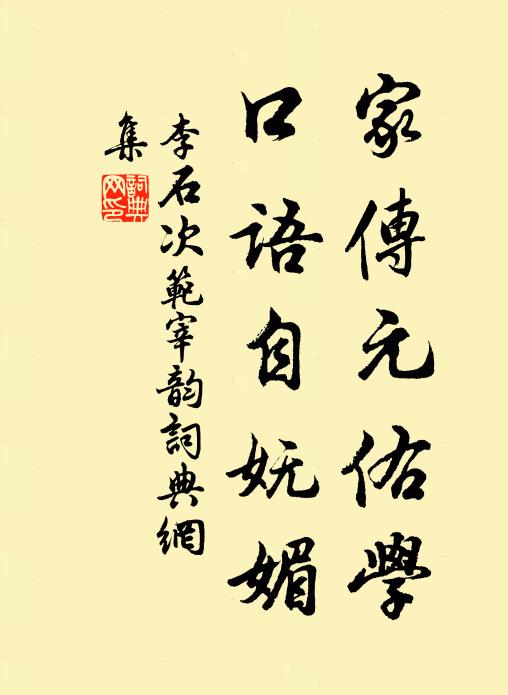 家傳元佑學
口語自妩媚
李石次範宰韵詞典網
集
詞典
网印